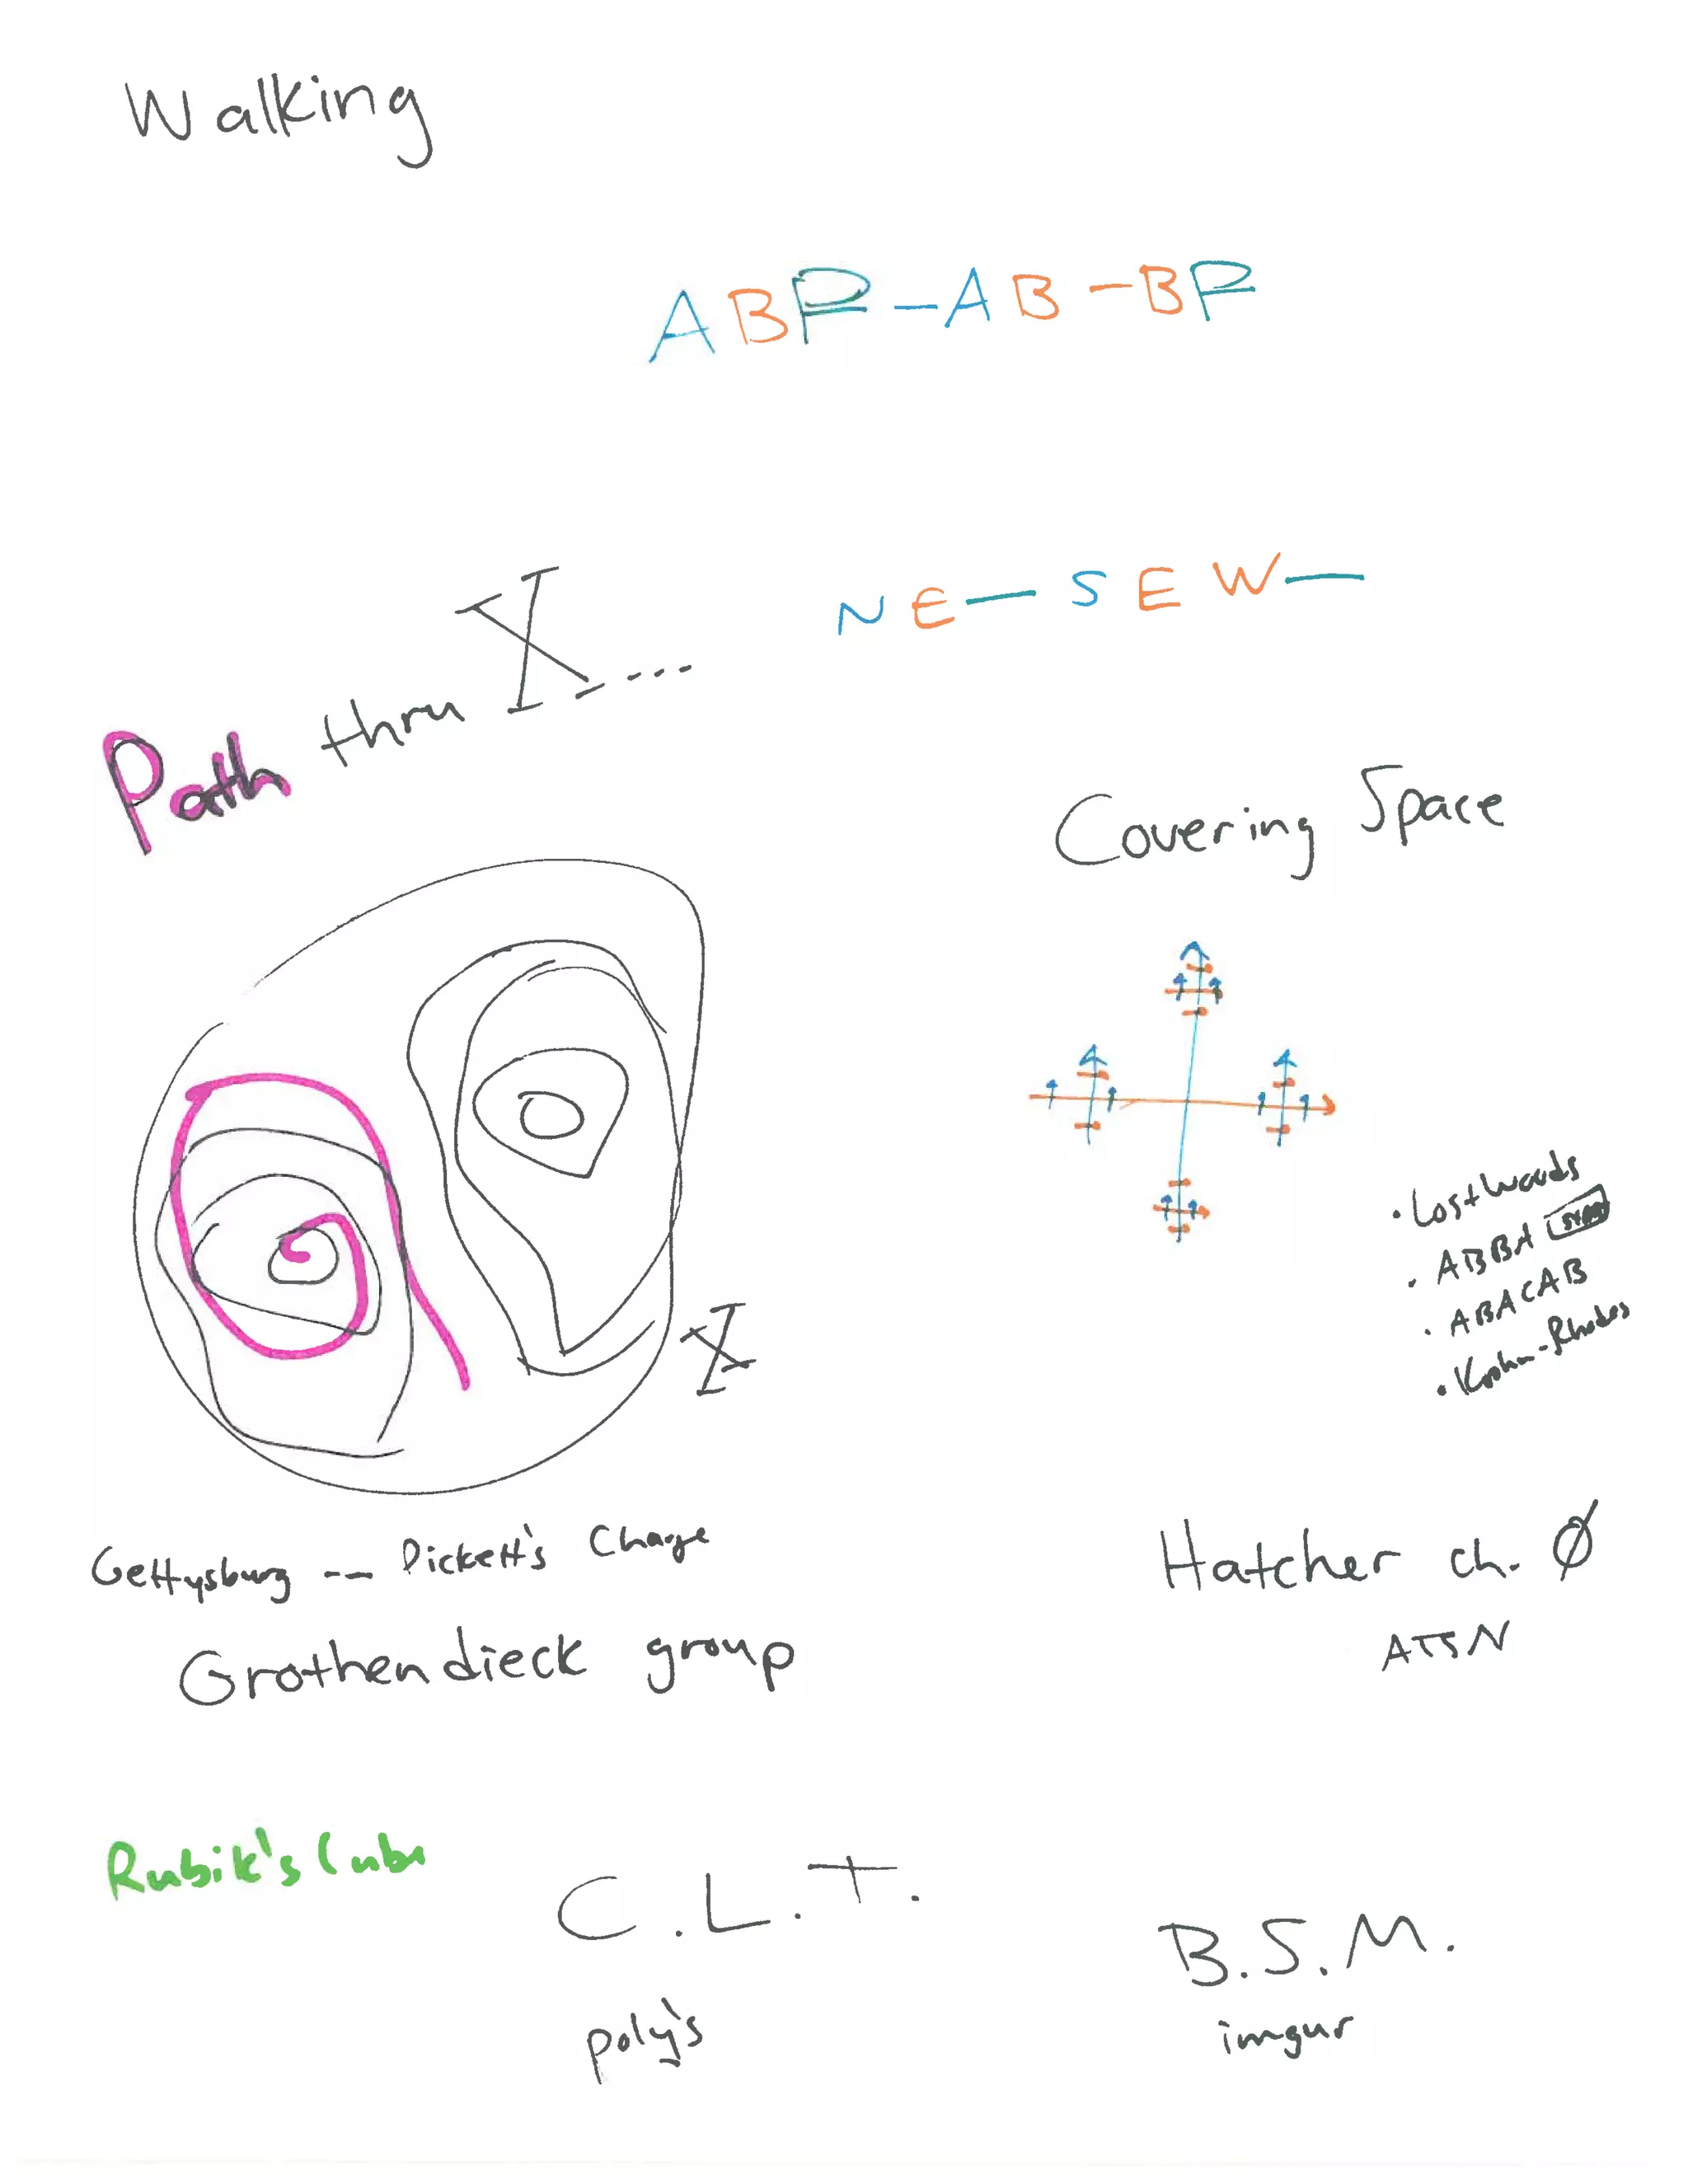 Walking
ABP-AB-BP
NE-SEW-
Path thru X....
Covering Space
• Lost Woods
• ABBA
• ABACAB
• Krohn-Rhodes
X
Gettysburg -- Pickett's Charge
Hatcher ch. Ø
Grothendieck group
Rubik's Cube
C.L.T.
B.S.M.
poly's
imgur